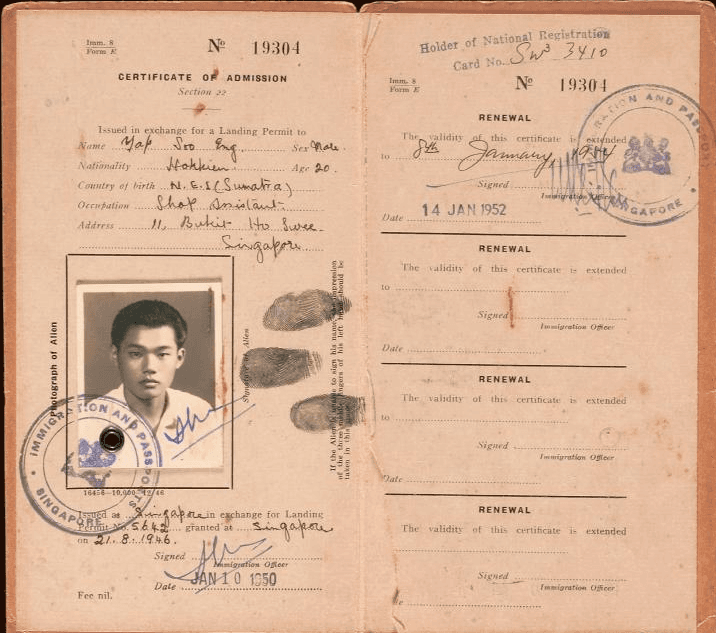 Imm. 8
Form E
No 19304
CERTIFICATE OF ADMISSION
Section 22
Issued in exchange for a Landing Permit to
Name Yap Soo Eng. Sex Male.
Nationality Hokkien. Age 20.
Country of birth N.E.I (Sumatra)
Occupation Shop Assistant.
Address 11, Bukit Ho Swee.
Singapore.
Photograph of Alien
Signature of Alien
If the Alien is unable to sign his name, the impression
of the three middle fingers of his left hand should be
taken in this space
IMMIGRATION AND PASSPORTS
SINGAPORE
16458—10,000—12/46
Issued at Singapore in exchange for Landing
Permit No. 5642 granted at Singapore
on 21.8.1946.
Signed
Immigration Officer
Date JAN 10 1950
Fee nil.
Holder of National Registration
Card No. SW3 3410
Imm. 8
Form E
No 19304
RENEWAL
The validity of this certificate is extended
to 8th January, 1954
Signed
Immigration Officer
Date 14 JAN 1952
IMMIGRATION AND PASSPORT
SINGAPORE
RENEWAL
The validity of this certificate is extended
to
Signed
Immigration Officer
Date
RENEWAL
The validity of this certificate is extended
to
Signed
Immigration Officer
Date
RENEWAL
The validity of this certificate is extended
Signed
Immigration Officer